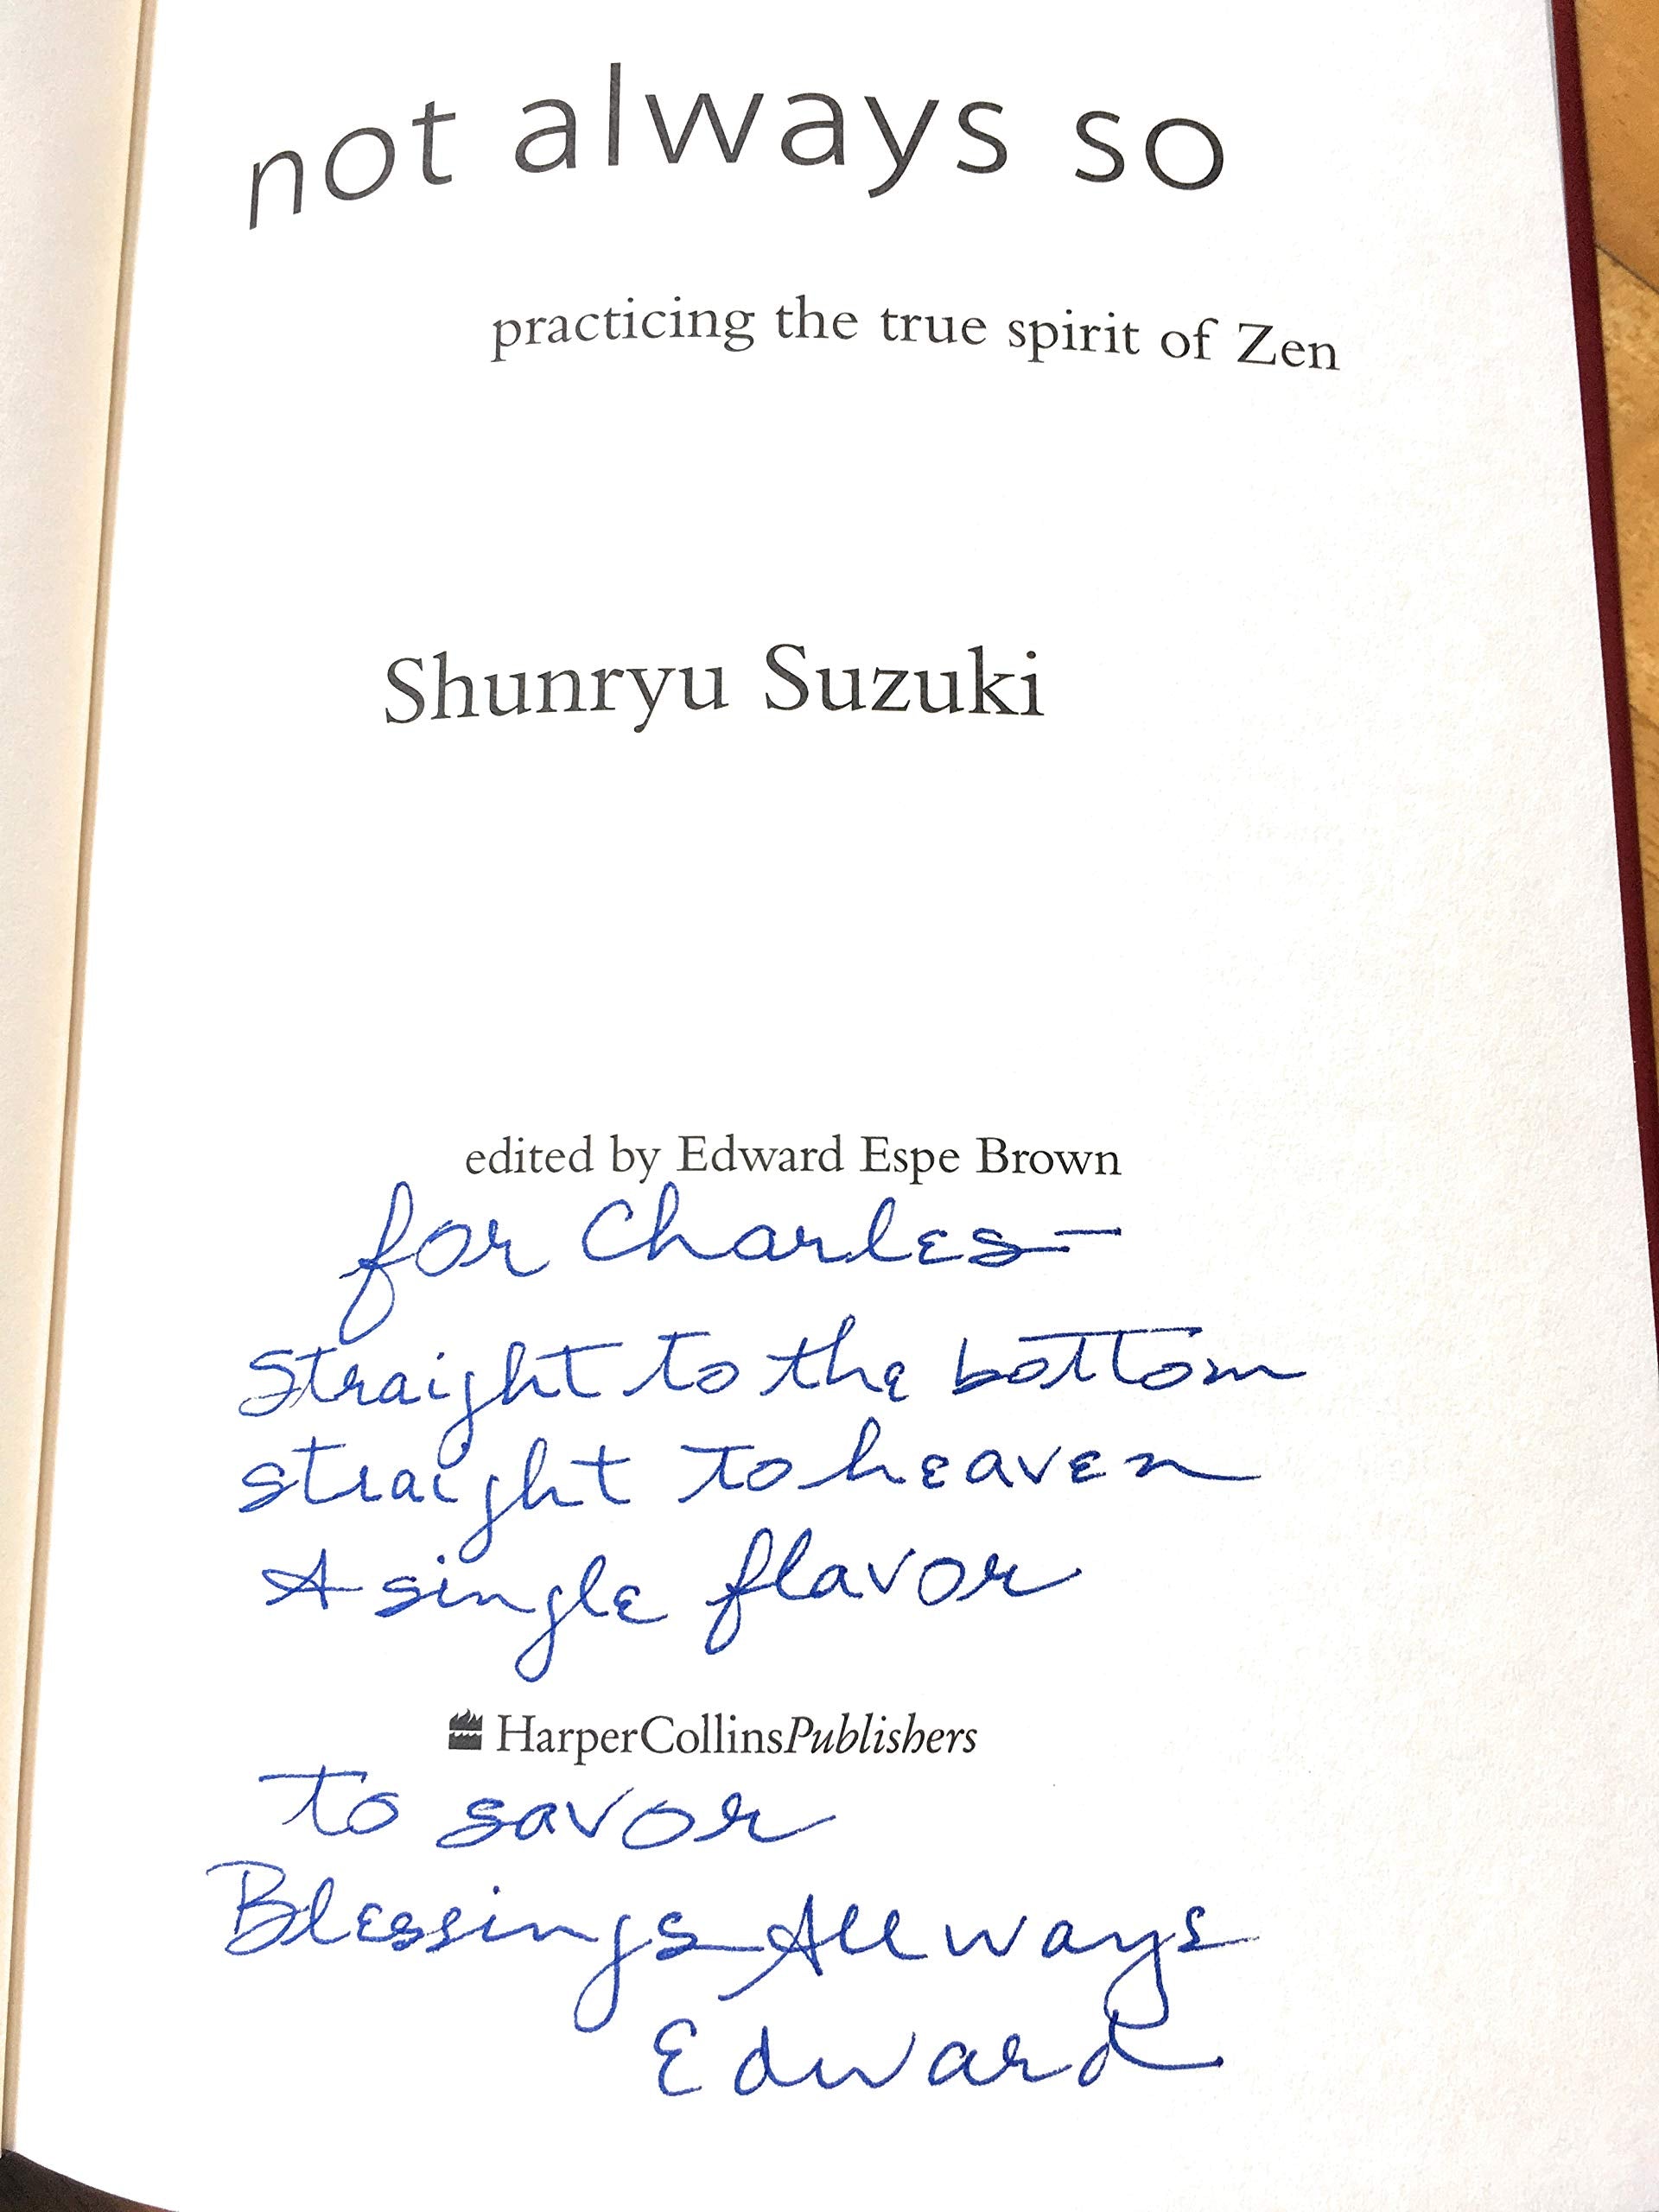 not always so
practicing the true spirit of Zen
Shunryu Suzuki
edited by Edward Espe Brown
for Charles—
Straight to the bottom
straight to heaven
A single flavor
HarperCollinsPublishers
to savor
Blessings All ways
Edward